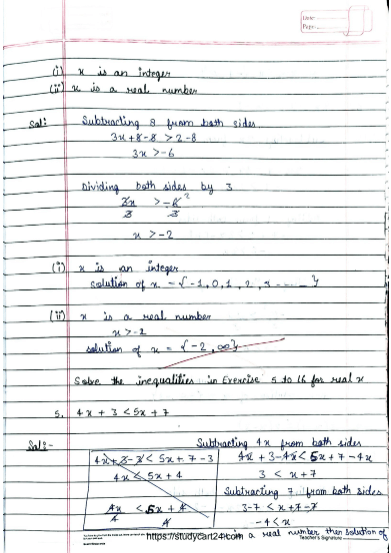 Date
Page
(i) x is an integer
(ii) x is a real number
Sol: Subtracting 8 from both sides
3x+8-8 > 2-8
3x > -6
Dividing both sides by 3
3x/3 > -6/3 2
x > -2
(i) x is an integer
solution of x = {-1, 0, 1, 2, 3 ---- }
(ii) x is a real number
x > -2
solution of x = {-2, ∞}
Solve the inequalities in Exercise 5 to 16 for real x
5. 4x + 3 < 5x + 7
Sol:- Subtracting 4x from both sides
4x + 3 - 3 < 5x + 7 - 3
4x < 5x + 4
4x/4 < 5x + 4/4
4x + 3 - 4x < 5x + 7 - 4x
3 < x + 7
Subtracting 7 from both sides
3-7 < x + 7-7
-4 < x
x is a real number then solution of
https://studycart24.com
Teacher's Signature